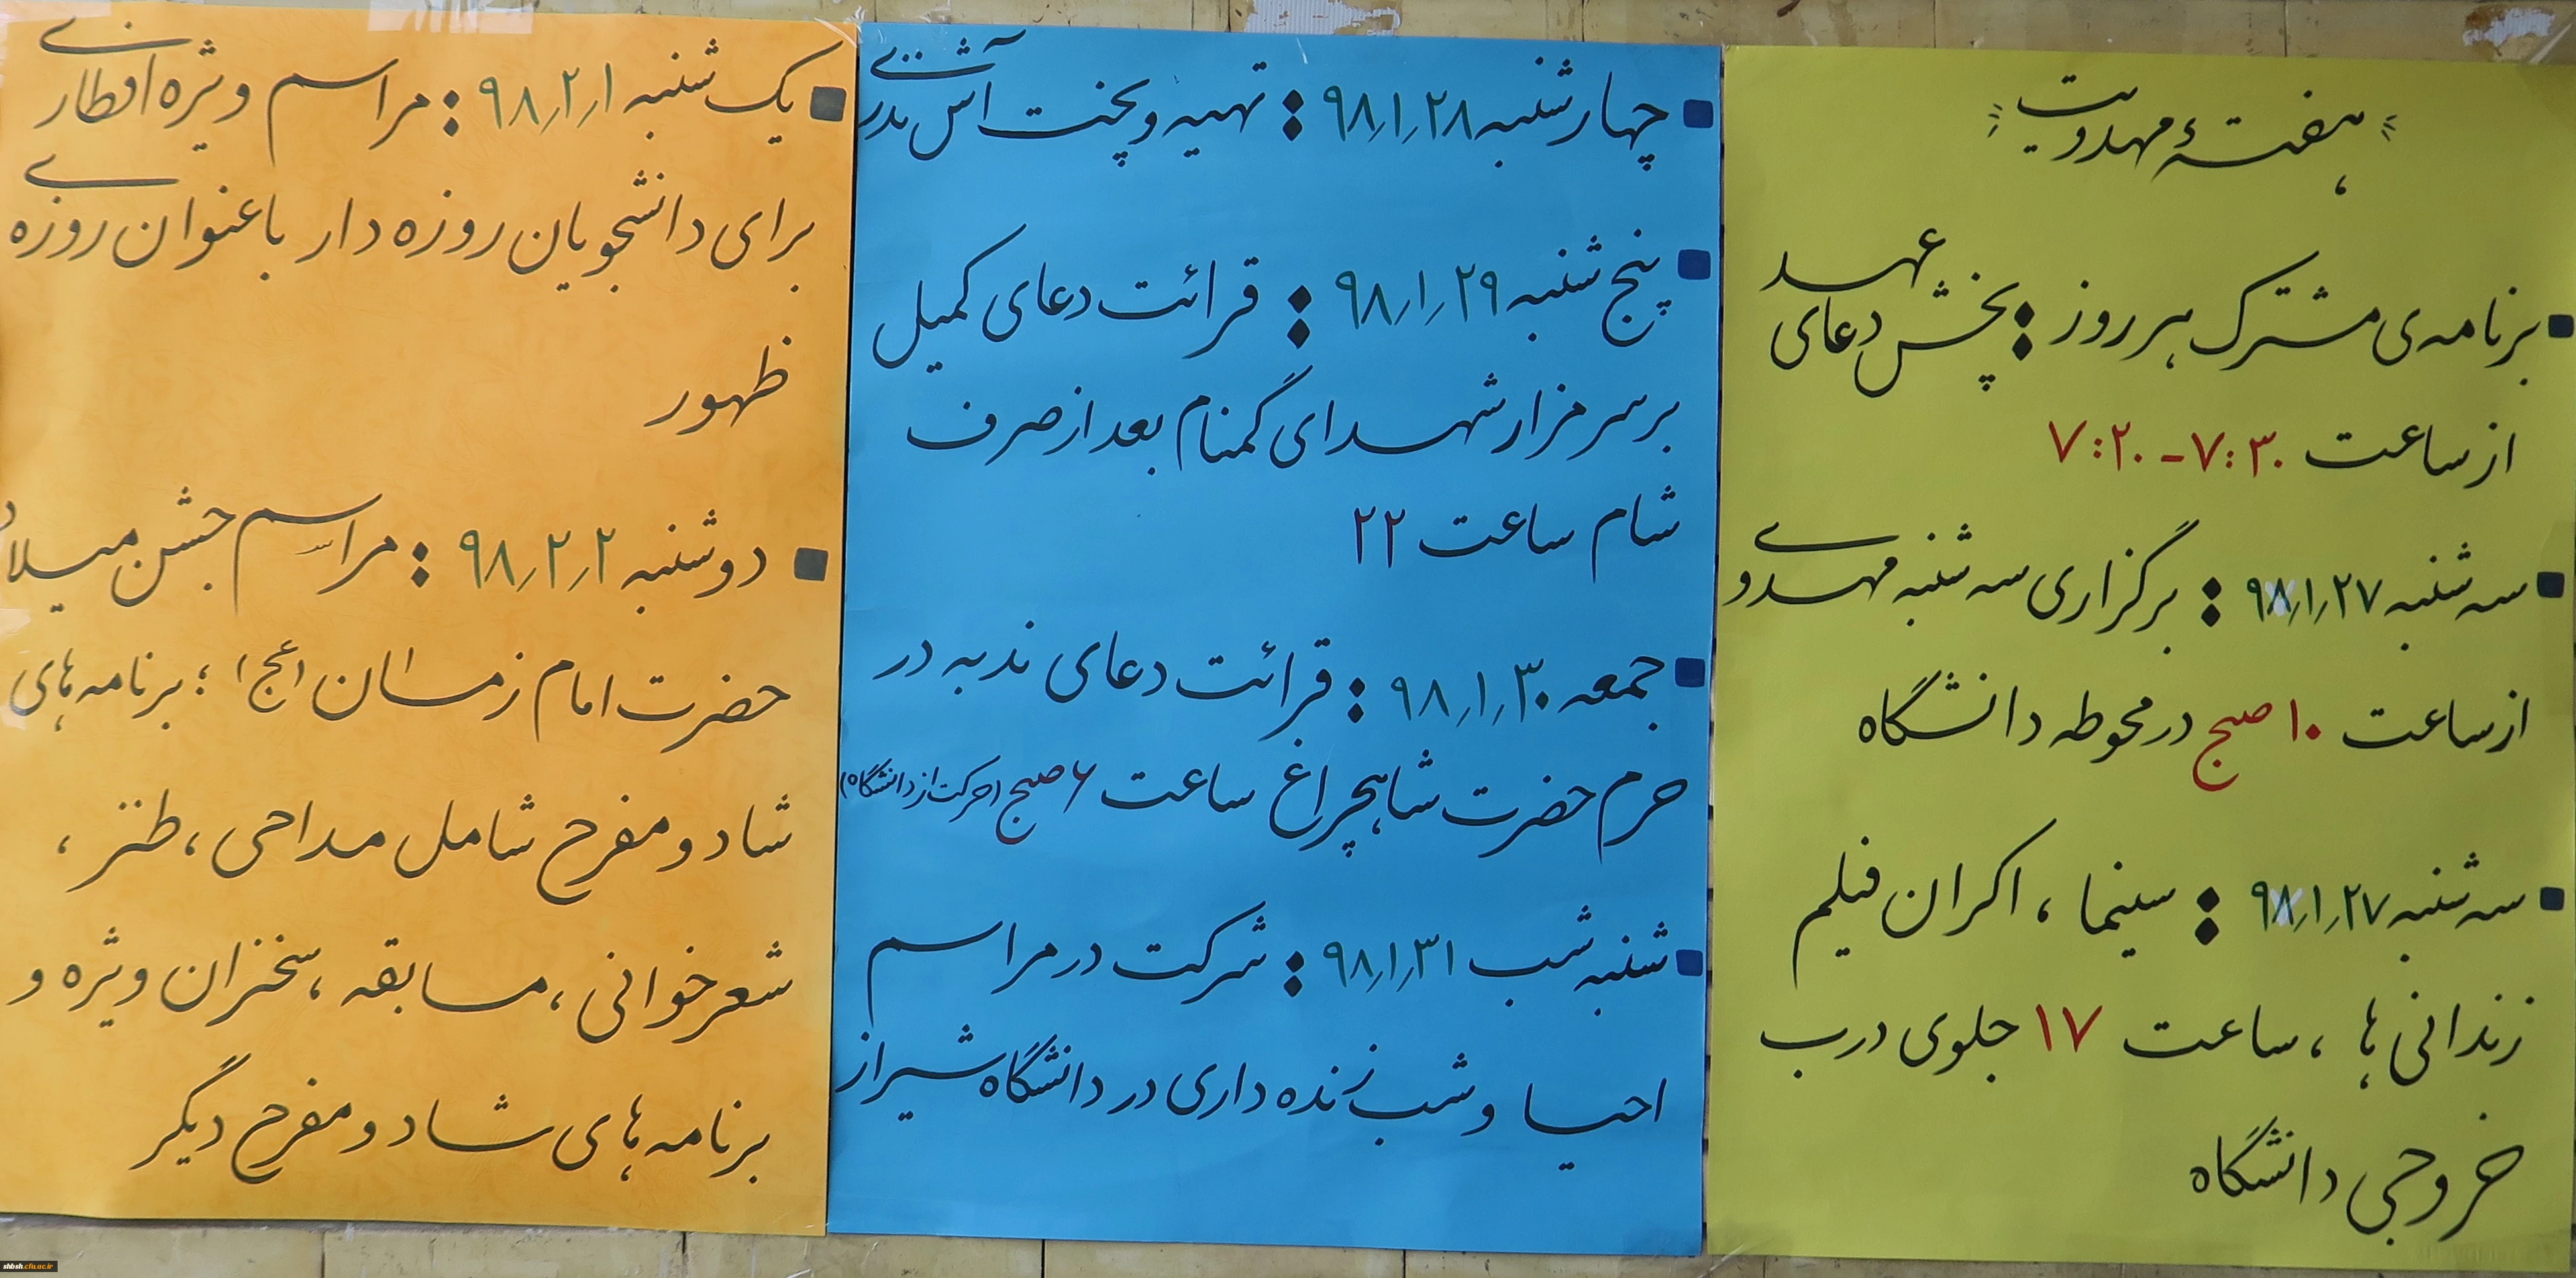 هفتهٔ مهدویت
برنامه‌ی مشترک هر روز : پخش دعای عهد
از ساعت ۷:۲۰ - ۷:۳۰
سه شنبه ۹۸/۱/۲۷ : برگزاری سه شنبه مهدوی
از ساعت ۱۰ صبح در محوطه دانشگاه
سه شنبه ۹۸/۱/۲۷ : سینما ، اکران فیلم
زندانی ها ، ساعت ۱۷ جلوی درب
خروجی دانشگاه
چهارشنبه ۹۸/۱/۲۸ : تهیه و پخت آش نذری
پنج شنبه ۹۸/۱/۲۹ : قرائت دعای کمیل
بر سر مزار شهدای گمنام بعد از صرف
شام ساعت ۲۲
جمعه ۹۸/۱/۳۰ : قرائت دعای ندبه در
حرم حضرت شاهچراغ ساعت ۶ صبح (حرکت از دانشگاه)
شنبه شب ۹۸/۱/۳۱ : شرکت در مراسم
احیا و شب زنده داری در دانشگاه شیراز
یک شنبه ۹۸/۲/۱ : مراسم ویژه افطاری
برای دانشجویان روزه دار با عنوان روزه ی
ظهور
دوشنبه ۹۸/۲/۲ : مراسم جشن میلاد
حضرت امام زمان (عج) ؛ برنامه های
شاد و مفرح شامل مداحی ، طنز ،
شعرخوانی ، مسابقه ، سخنران ویژه و
برنامه های شاد و مفرح دیگر
shbsh.cfu.ac.ir